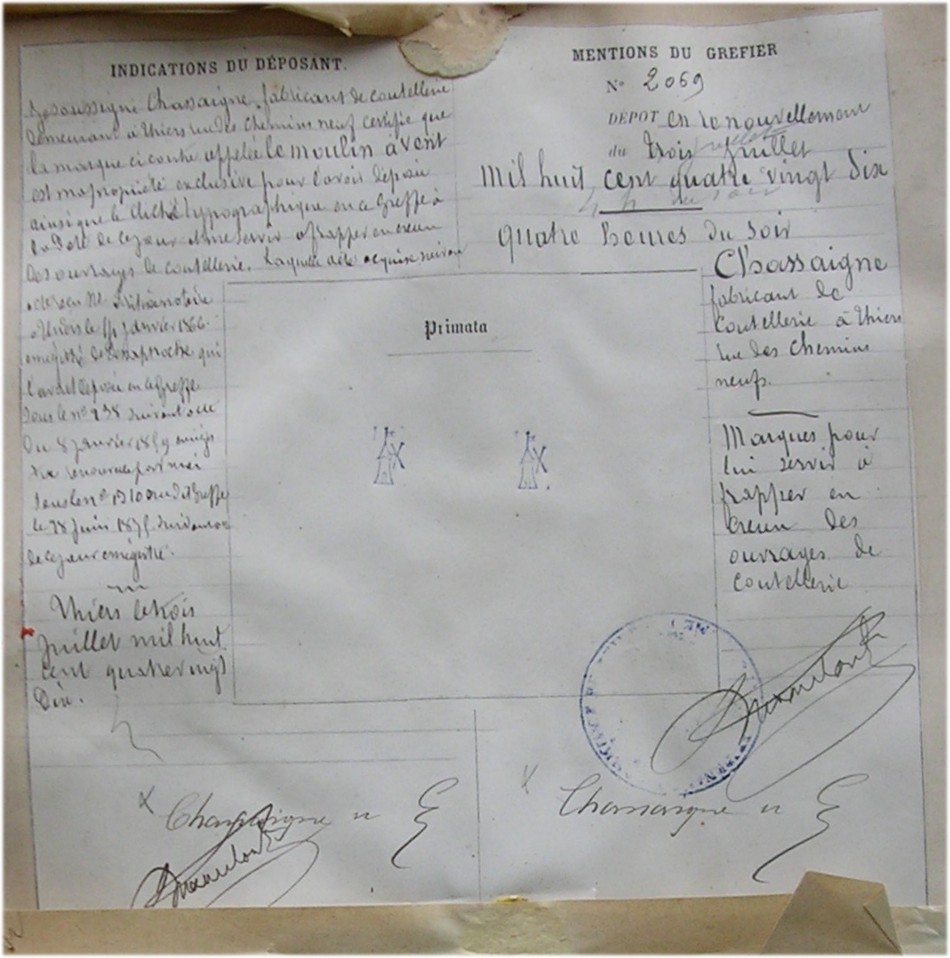 INDICATIONS DU DÉPOSANT.
Je soussigné Chassaigne, fabricant de coutellerie
demeurant à Thiers rue des chemins neuf certifie que
la marque ci contre appelée le moulin à vent
est ma propriété exclusive pour l'avoir déposée
ainsi que le cliché typographique en ce Greffe à
la date de ce jour servir à frapper en creux
des ouvrages de coutellerie. Laquelle a été acquise suivan
notaire
à Thiers le janvier 1866.
enregistré qui
l'avait déposée en ce Greffe
sous le n° 938 suivant acte
du 8 janvier 1859
sous le n° 1310 au dit Greffe
le 28 juin 1875
de ce jour enregistré.
Thiers le trois
juillet mil huit
cent quatre vingt
Dix.
MENTIONS DU GREFIER
N° 2069
DÉPOT en renouvellement
du trois juillet
Mil huit cent quatre vingt dix
quatre heures du soir
Chassaigne
fabricant de
coutellerie à Thiers
rue des chemins
neufs.
Marques pour
lui servir à
frapper en
creux des
ouvrages de
coutellerie
Primata
Chassaigne
Chassaigne